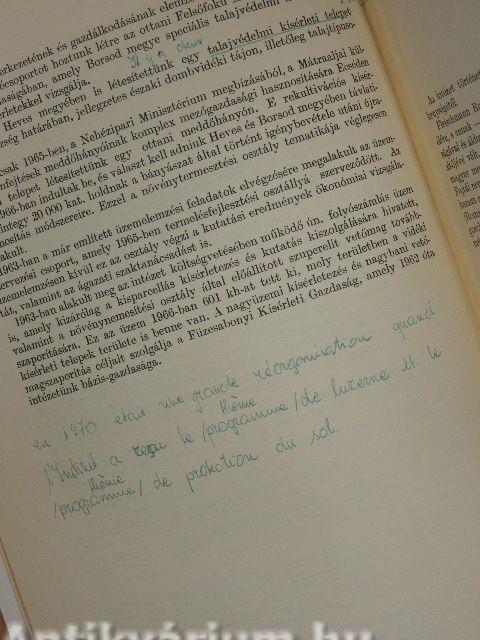 erkezetének és gazdálkodásának elemzé
ócsoportot hoztunk létre az ottani Felsőfokú
aságában, amely Borsod megye speciális talajvédelmi
érletekkel vizsgálja.
Il y a deux
Heves megyében is létesítettünk egy talajvédelmi kísérleti telepet
zség határában, jellegzetes északi dombvidéki tájon, illetőleg talajtípuson.
csak 1965-ben, a Nehézipari Minisztérium megbízásából, a Mátraaljai kül
infejtések meddőhányóinak komplex mezőgazdasági hasznosítására Ecséden
i telepet létesítettünk egy ottani meddőhányón. E rekultivációs kísér-
966-ban indultak be, és választ kell adniuk Heves és Borsod megyében távlati-
integy 20 000 kat. holdnak a bányászat által történt igénybevétele utáni újra-
nosítás módszereire. Ezzel a növénytermesztési osztály tematikája véglegesen
akult.
1963-ban a már említett üzemelemzési feladatok elvégzésére megalakult az üzem-
zervezési csoport, amely 1965-ben termelésfejlesztési osztállyá szerveződött. Az
üzemelemzésen kívül ez az osztály végzi a kutatási eredmények ökonómiai vizsgála-
tát, valamint az ágazati szaktanácsadást is.
1963-ban alakult meg az intézet költségvetésében működő ún. folyószámlás üzem
is, amely kizárólag a kisparcellás kísérletezés és kutatás kiszolgálására hivatott,
valamint a növénynemesítési osztály által előállított, szuperelit vetőmag tovább-
szaporítására. Ez az üzem 1966-ban 601 kh-at tett ki, moly területben a vidéki
kísérleti telepek területe is benne van. A nagyüzemi kísérletezés és nagybani vető-
magszaporítás céljait szolgálja a Füzesabonyi Kísérleti Gazdaság, amely 1962 óta
intézetünk bázis-gazdasága.
en 1970 était une grande réorganisation quand
l'Institut a reçu le /programme/ de luzerne et le
thème
thème
/programme/ de protection du sol.
Az intézet történet
Antikvárium.hu